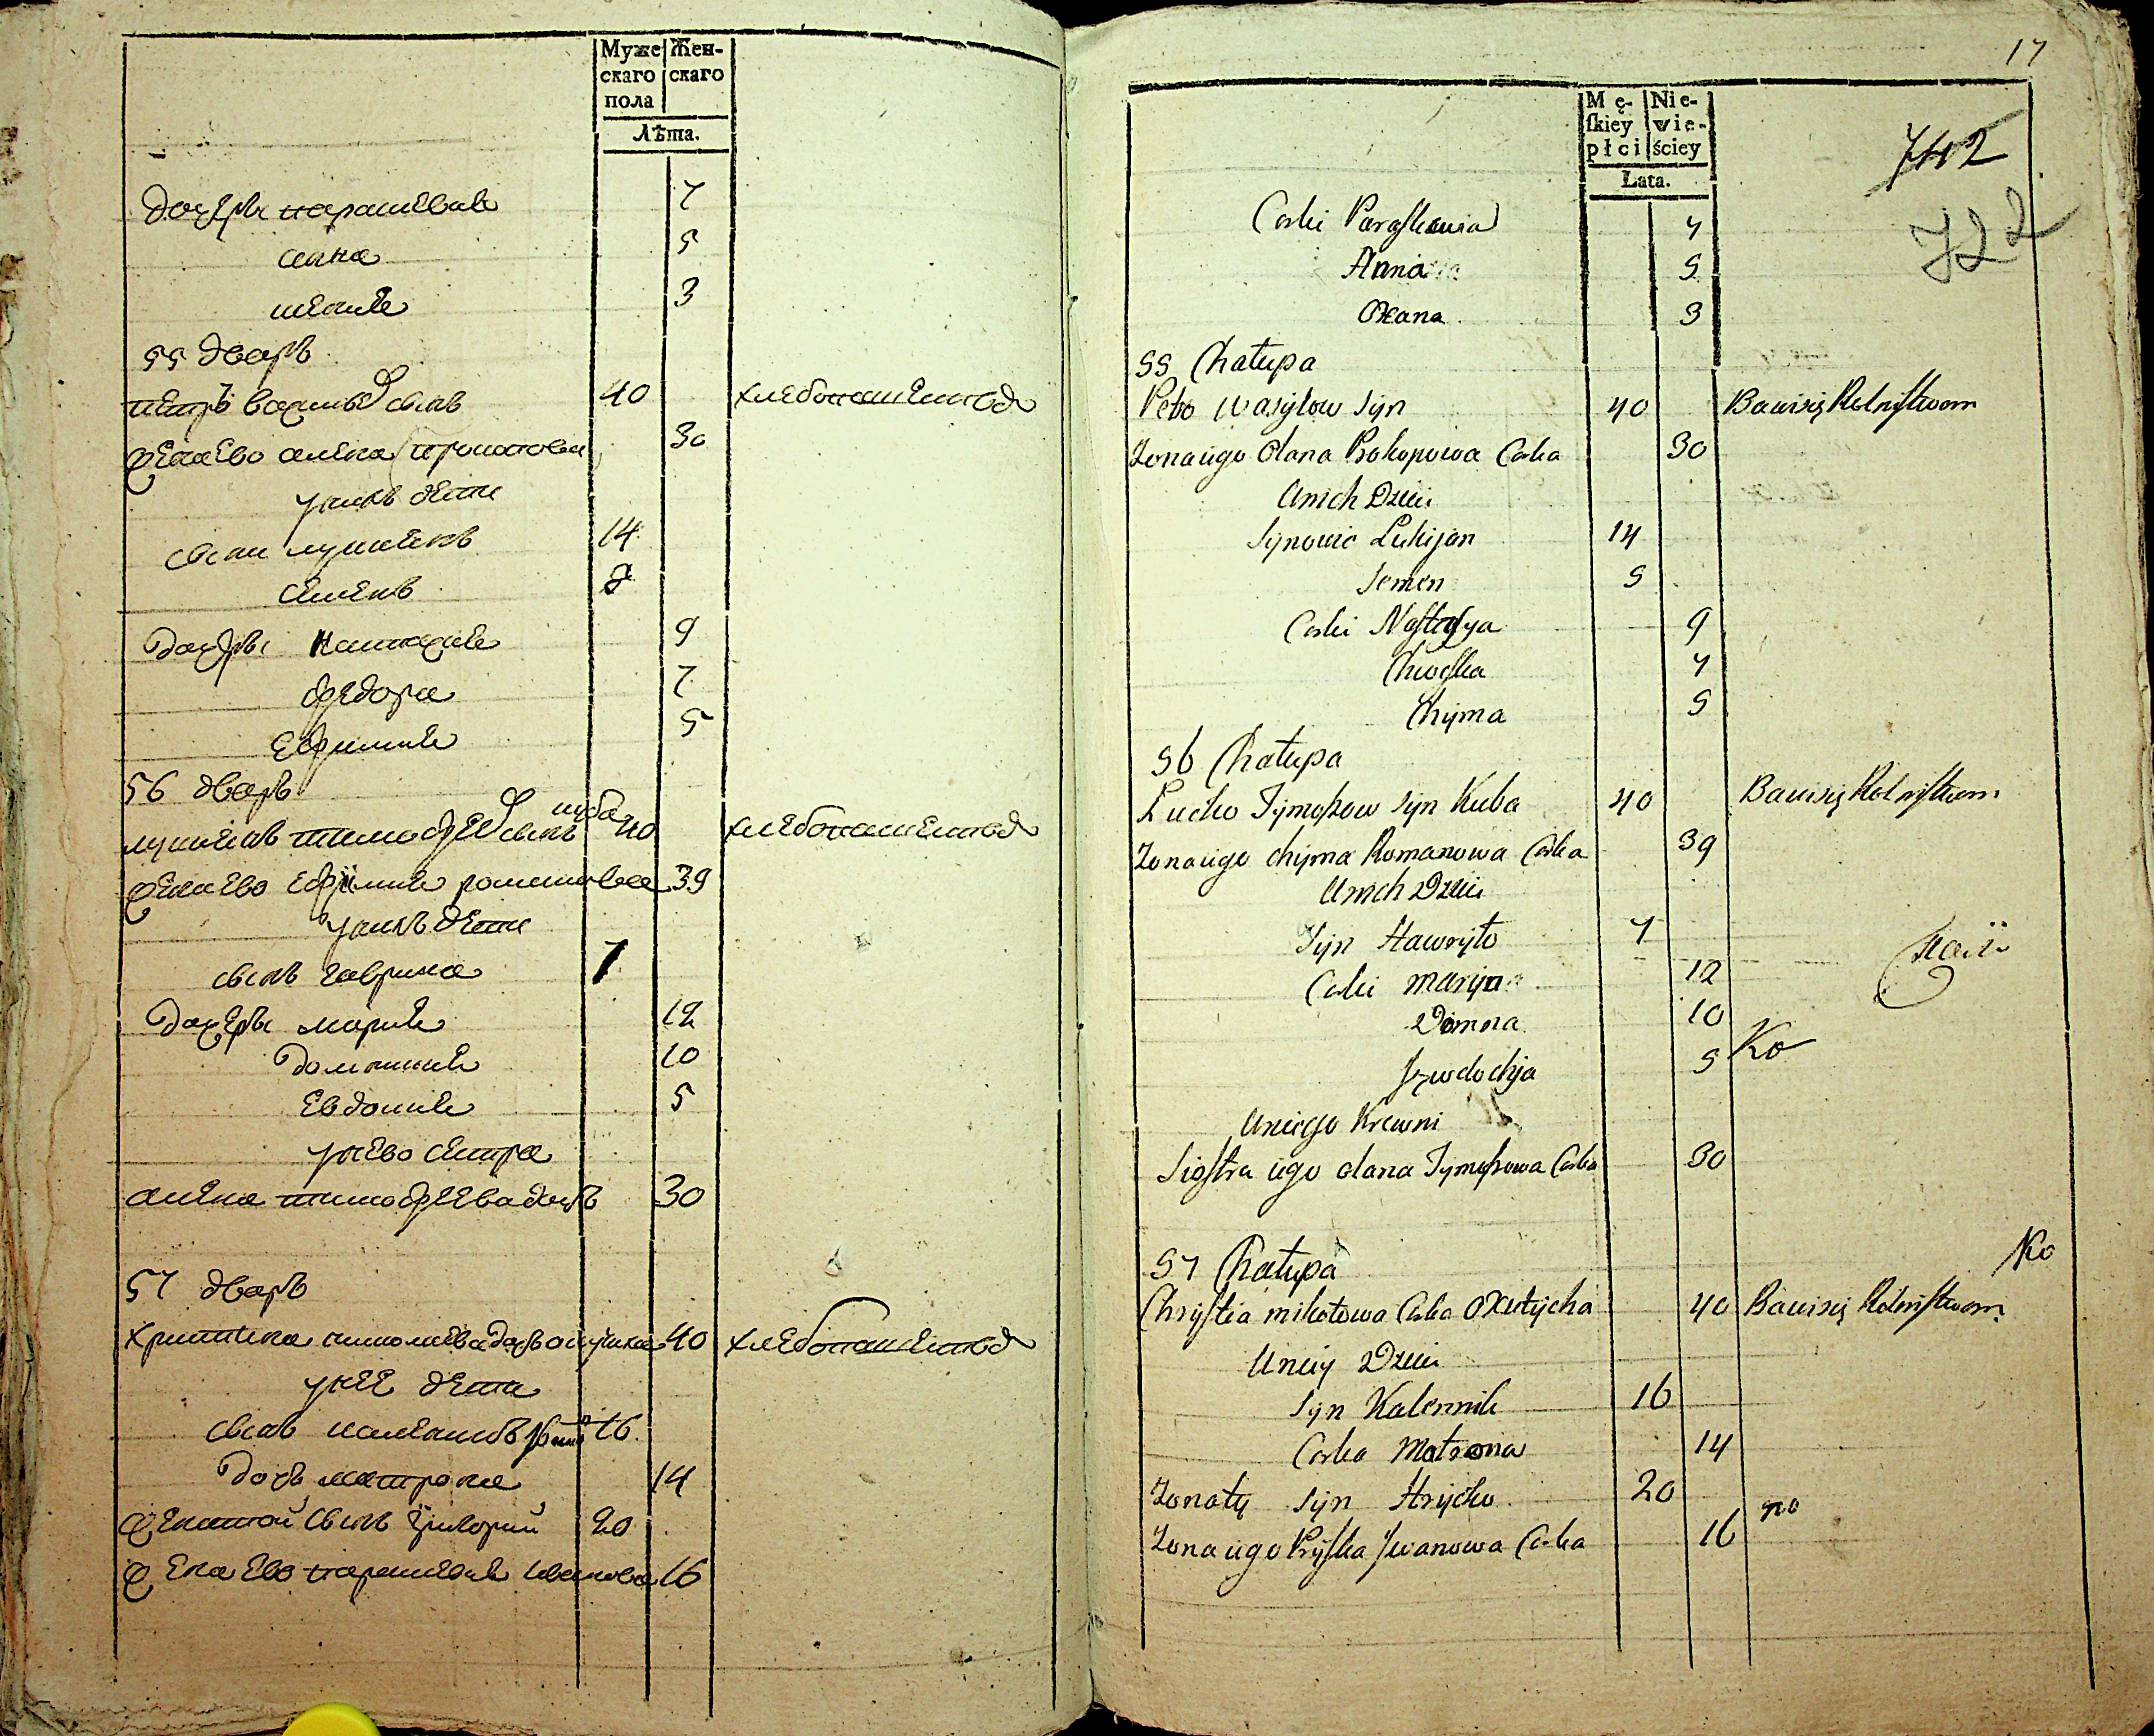 Муже Жен-
скаго скаго
пола
Лѣта.
дочери парасковия 7
анна 5
ксения 3
55 дворъ
петръ васильев сынъ 40 хлебопашеством
жена ево алена прокопова 30
у нихъ дети
сыни лукиянъ 14
семенъ 8
дочери настасия 9
федора 7
Ефимия 5
56 дворъ
куба
лукиянъ тимофеев сынъ 40 хлебопашеством
жена ево ефимия романова 39
у нихъ дети
сынъ гаврила 7
дочери мария 12
домникия 10
Евдокия 5
у нево сестра
алена тимофеева дочь 30
57 дворъ
христина николаева дочь 40 хлебопашеством
у нее дети
сынъ каленикъ 16
дочь матрона 14
женатой сынъ григорий 20
жена ево парасковия иванова 16
17
Mę- Nie-
ſkiey wie-
płci ściey
Łata.
742
722
Corki Paraſkowia 7
Anna 5
Oxana 3
55 Chałupa
Petro Wasylow Syn 40 Bawisię Rolniſtwom
Zona iigo Olana Prokopowa Corka 30
Unich Dzieci
Synowie Lukijan 14
Semen 5
Corki Naſtasya 9
Chwoſka 7
Chyma 5
56 Chałupa
Lucko Tymoſzow Syn Kuba 40 Bawisię Rolniſtwom
Zona iigo Chyma Romanowa Corka 39
Unich Dzieci
Syn Hawryło 7
Corki Maryia 12
Domna 10
Jewdochja 5 Ko
Uniego Krewni
Sioſtra iigo Olana Tymoſzowa Corka 30
57 Chałupa Ko
Chryſtia Mikołowa Corka 40 Bawisię Rolniſtwom
Uniiy Dzieci
Syn Kalennik 16
Corka Matrona 14
Zonaty Syn Hrycko 20
Zona iigo Pryſka Jwanowa Corka 16 no